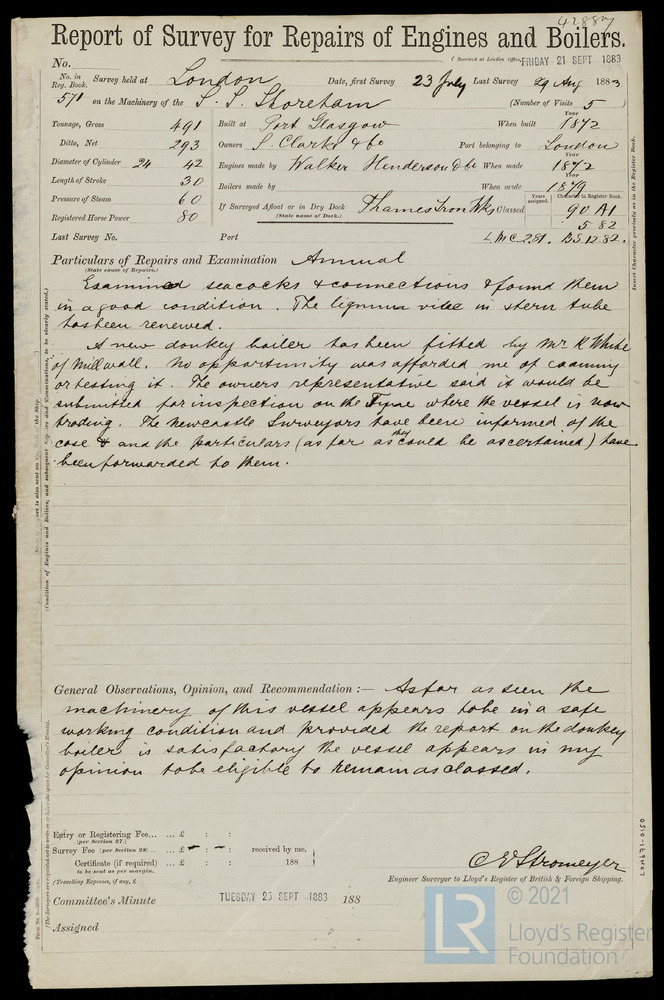 42887
Report of Survey for Repairs of Engines and Boilers.
(Received at London Office FRIDAY 21 SEPT 1883
No.
No. in Reg. Book. Survey held at London Date, first Survey 23 July Last Survey 29 Aug 1883
571 on the Machinery of the S. S. Shoreham (Number of Visits 5)
Tonnage, Gross 491 Built at Port Glasgow When built Year 1872
Ditto, Net 293 Owners S. Clarke & Co Port belonging to London
Diameter of Cylinder 24 42 Engines made by Walker Henderson & Co When made Year 1872
Length of Stroke 30 Boilers made by When made Year 1879
Pressure of Steam 60 If Surveyed Afloat or in Dry Dock Thames Iron Wks Classed Years assigned. Character in Register Book. 90 A1
(State name of Dock.)
Registered Horse Power 80 5 82
Last Survey No. Port LMC 2.81. BS 12 82.
Insert Character precisely as in the Register Book.
Particulars of Repairs and Examination Annual
(State cause of Repairs.)
Examined seacocks & connections & found them
in a good condition. The lignum vitæ in stern tube
has been renewed.
A new donkey boiler has been fitted by Mr R White
of Millwall. No opportunity was afforded me of examining
or testing it. The owners representative said it would be
submitted for inspection on the Tyne where the vessel is now
trading. The Newcastle Surveyors have been informed of the
case & and the particulars (as far as they could be ascertained) have
been forwarded to them.
General Observations, Opinion, and Recommendation :— As far as seen the
machinery of this vessel appears to be in a safe
working condition and provided the report on the donkey
boiler is satisfactory the vessel appears in my
opinion to be eligible to remain as classed.
Entry or Registering Fee... ... £ : :
(per Section 27.)
Survey Fee (per Section 28) ... ... £ - : - : received by me,
Certificate (if required) ... £ : : 188
to be sent as per margin.
(Travelling Expenses, if any, £ )
C E Stromeyer
Engineer Surveyor to Lloyd's Register of British & Foreign Shipping.
Committee's Minute TUESDAY 25 SEPT 1883 188
Assigned
LON671-0150
LR
© 2021
Lloyd's Register
Foundation